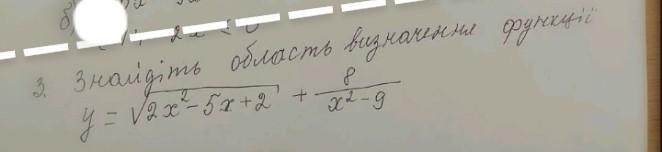 б)
3. Знайдіть область визначення функції
y = √(2x² - 5x + 2) + 8/(x² - 9)